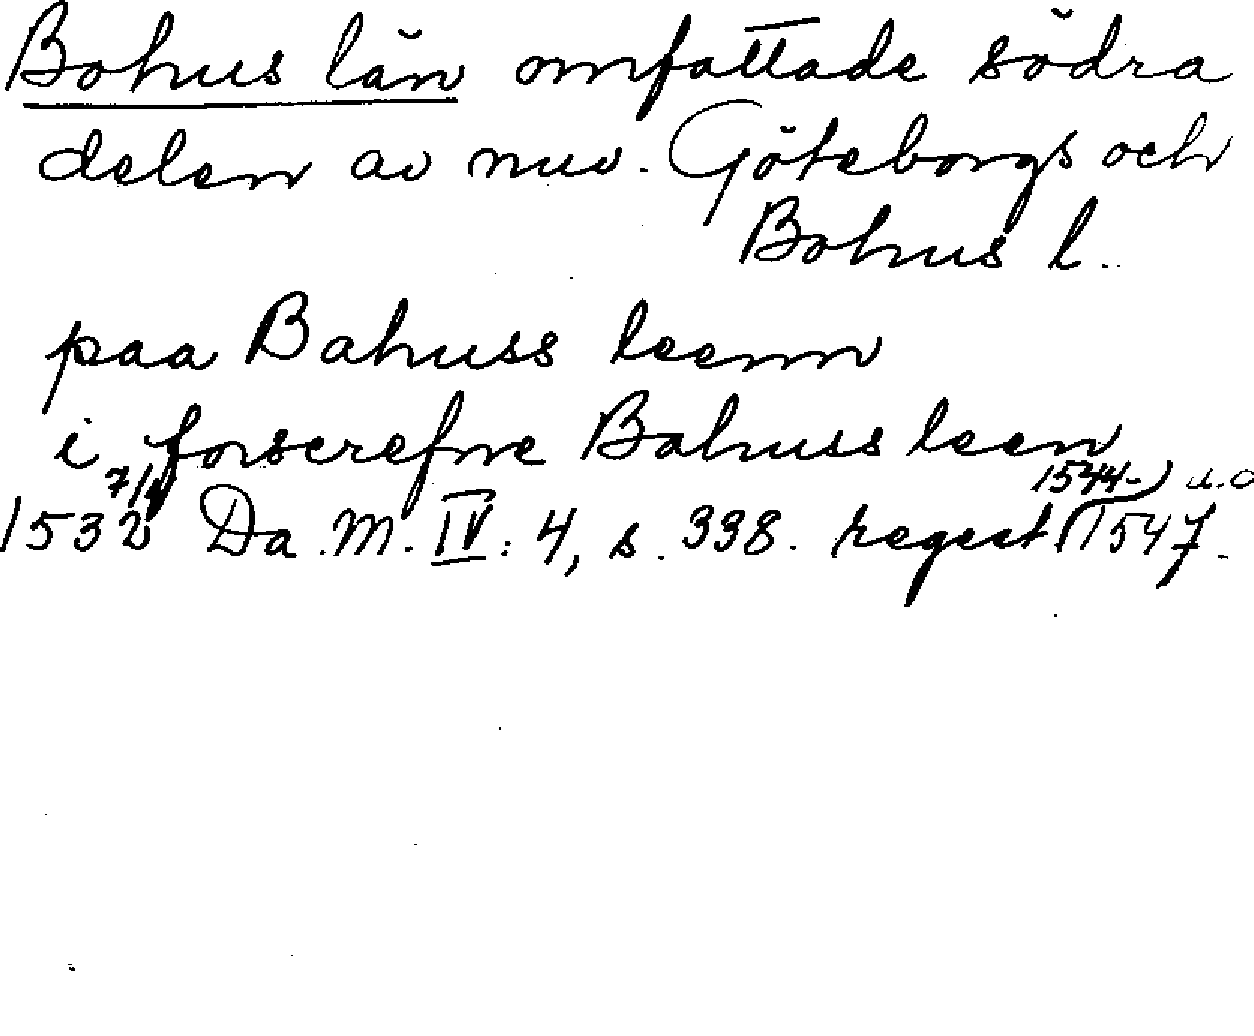 Bohus län omfattade södra
delen av nuv. Göteborgs och
Bohus l.
paa Bahuss leenn
i forscrefne Bahuss leen
1532 7/4 Da. M. IV: 4, s. 338. regest (1544-) u.o
1547.